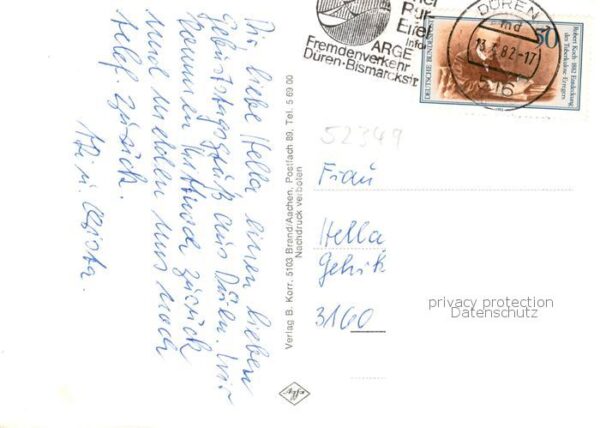 Dir liebe Hella einen lieben
Geburtstagsgruß aus Düren. Wir
kommen Mittwoch zurück
und melden uns noch
telef. zurück.
Verlag B. Korr. 5103 Brand/Aachen, Postfach 89, Tel. 5 69 00
Nachdruck verboten
ARGE
Fremdenverkehr
Düren·Bismarckstr
DÜREN
82-17
516
50
DEUTSCHE BUNDESPOST
Robert Koch 1882 Entdeckung
des Tuberkulose-Erregers
52349
Frau
Hella
3160
privacy protection
Datenschutz